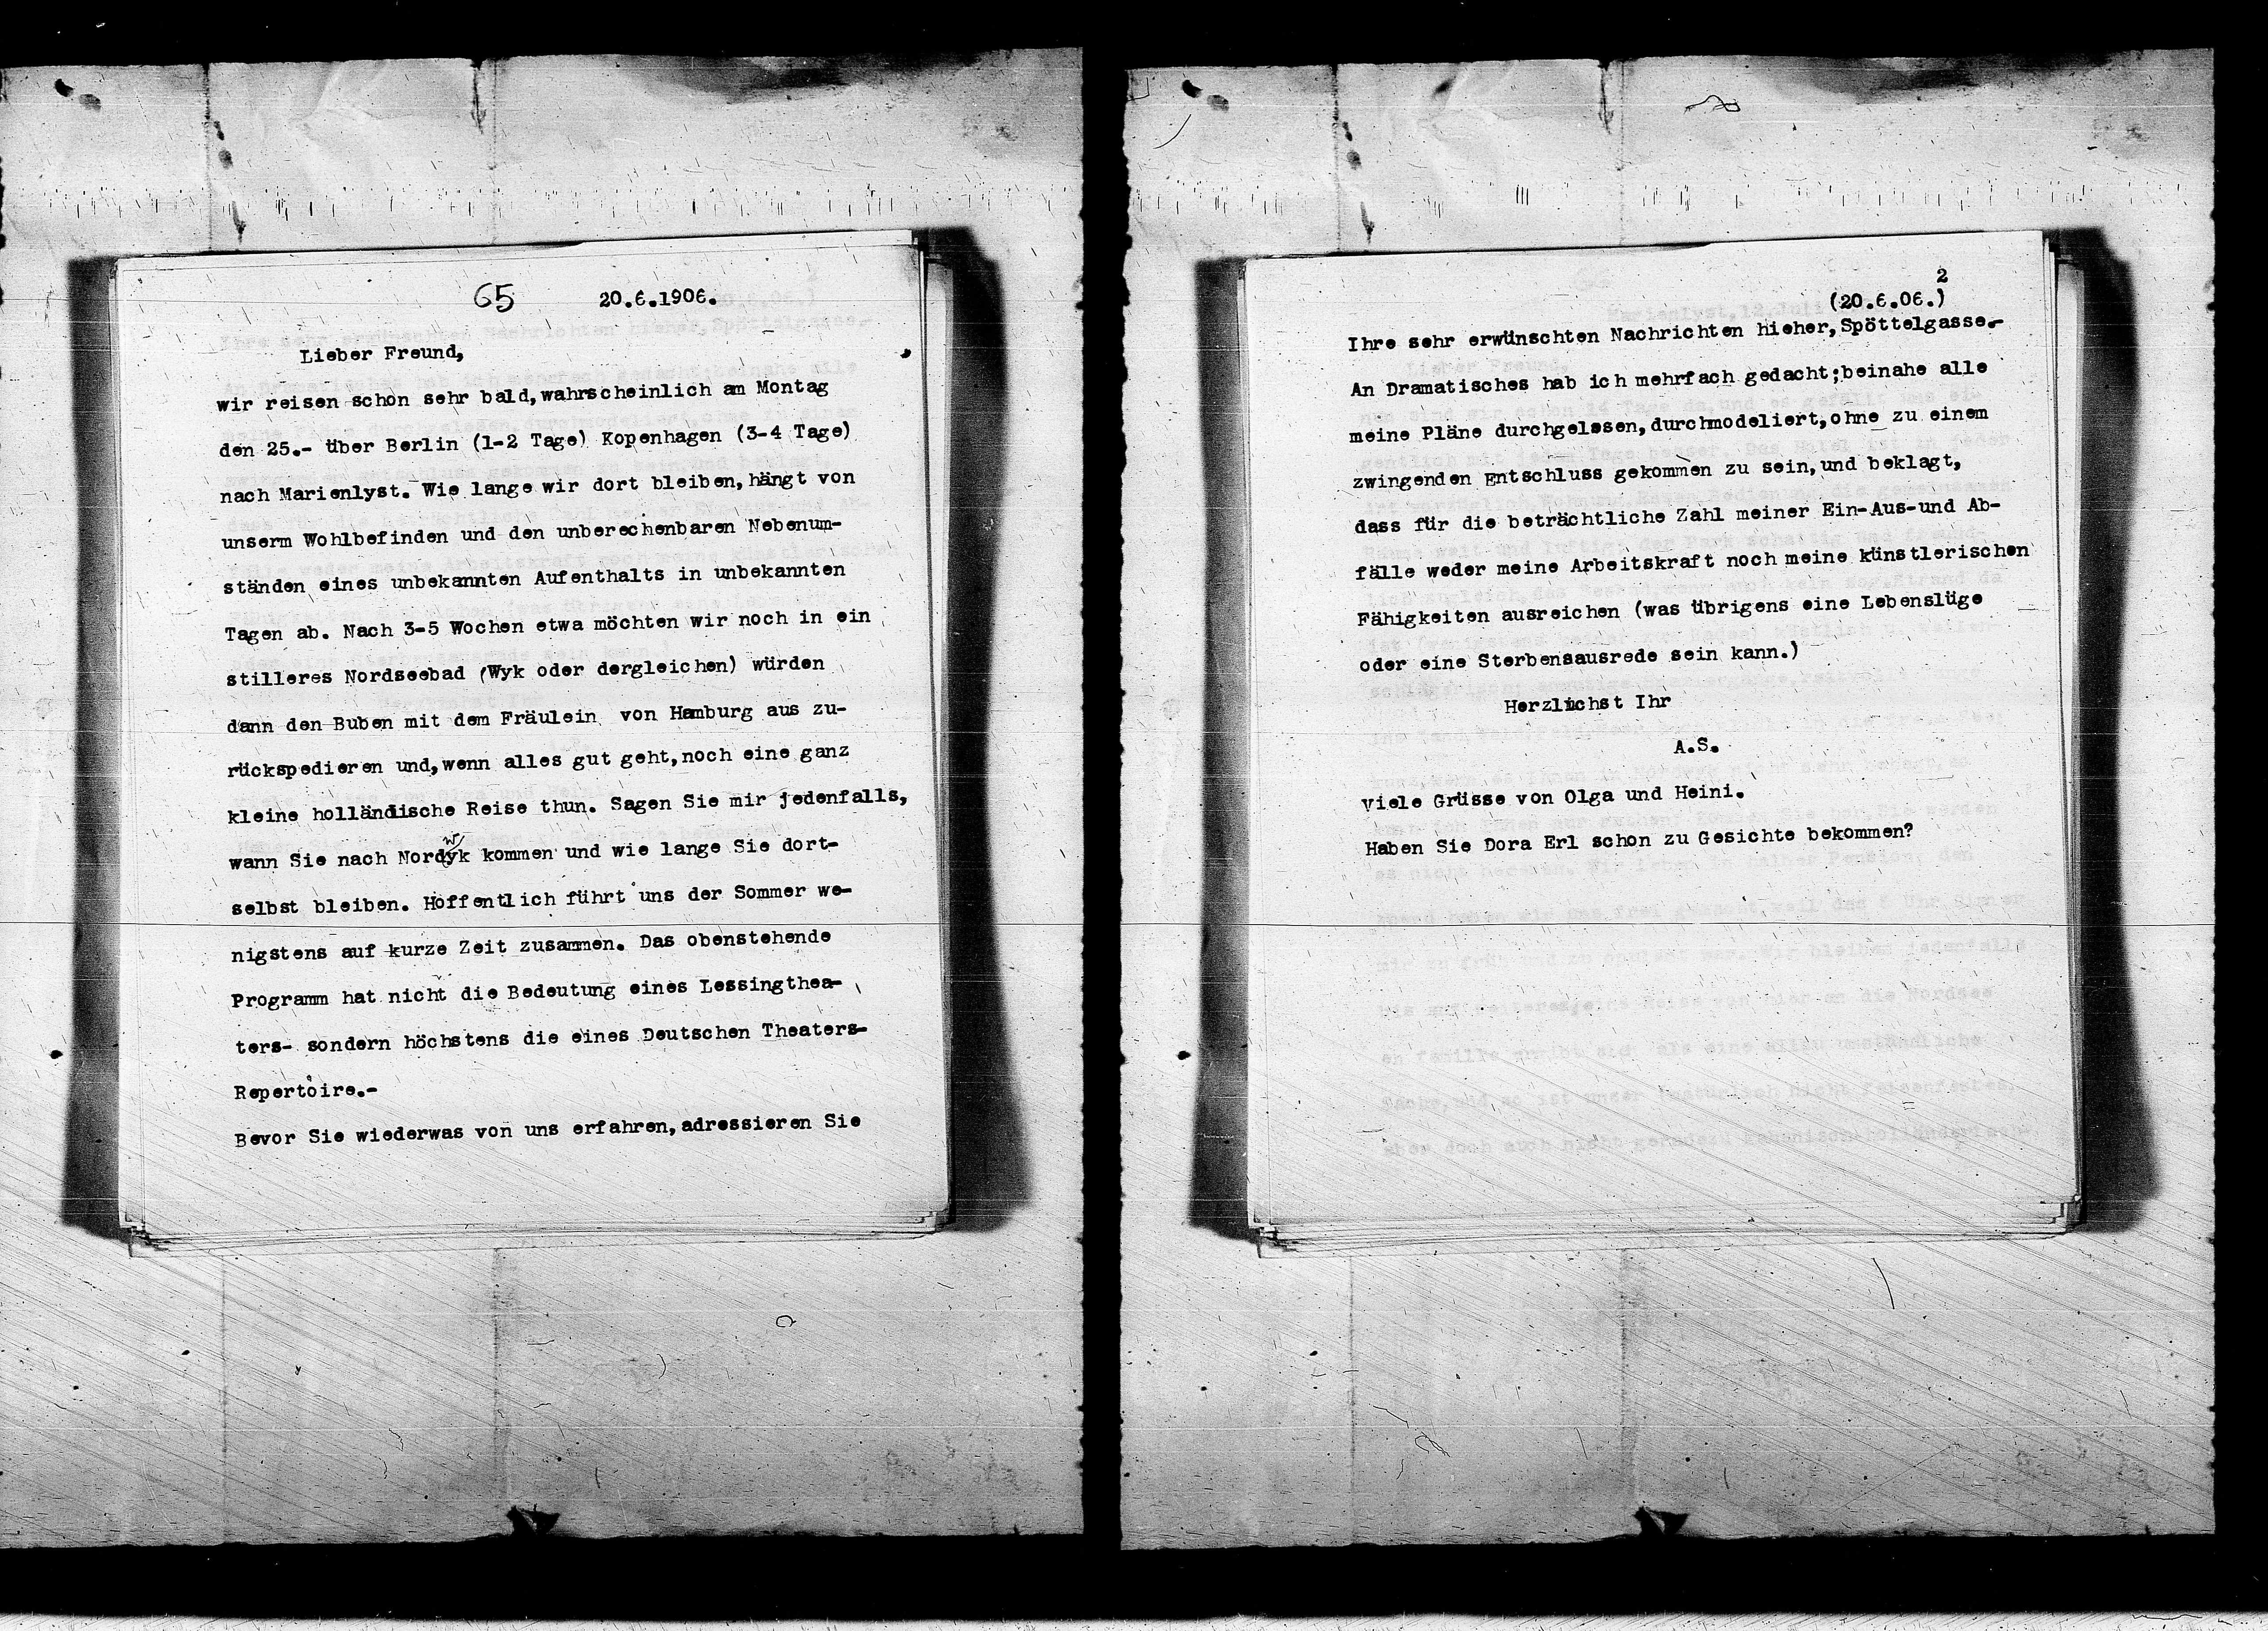 65 20.6.1906.
Lieber Freund,
wir reisen schon sehr bald,wahrscheinlich am Montag
den 25.- über Berlin (1-2 Tage) Kopenhagen (3-4 Tage)
nach Marienlyst. Wie lange wir dort bleiben,hängt von
unserm Wohlbefinden und den unberechenbaren Nebenum-
ständen eines unbekannten Aufenthalts in unbekannten
Tagen ab. Nach 3-5 Wochen etwa möchten wir noch in ein
stilleres Nordseebad (Wyk oder dergleichen) würden
dann den Buben mit dem Fräulein von Hamburg aus zu-
rückspedieren und,wenn alles gut geht,noch eine ganz
kleine holländische Reise thun. Sagen Sie mir jedenfalls,
wann Sie nach Nordwyk kommen und wie lange Sie dort-
selbst bleiben. Hoffentlich führt uns der Sommer we-
nigstens auf kurze Zeit zusammen. Das obenstehende
Programm hat nicht die Bedeutung eines Lessingthea-
ters- sondern höchstens die eines Deutschen Theaters-
Repertoire.-
Bevor Sie wiederwas von uns erfahren,adressieren Sie
2
(20.6.06.)
Ihre sehr erwünschten Nachrichten hieher,Spöttelgasse.-
An Dramatisches hab ich mehrfach gedacht;beinahe alle
meine Pläne durchgelesen,durchmodeliert,ohne zu einem
zwingenden Entschluss gekommen zu sein,und beklagt,
dass für die beträchtliche Zahl meiner Ein-Aus-und Ab-
fälle weder meine Arbeitskraft noch meine künstlerischen
Fähigkeiten ausreichen (was übrigens eine Lebenslüge
oder eine Sterbensausrede sein kann.)
Herzlichst Ihr
A.S.
Viele Grüsse von Olga und Heini.
Haben Sie Dora Erl schon zu Gesichte bekommen?